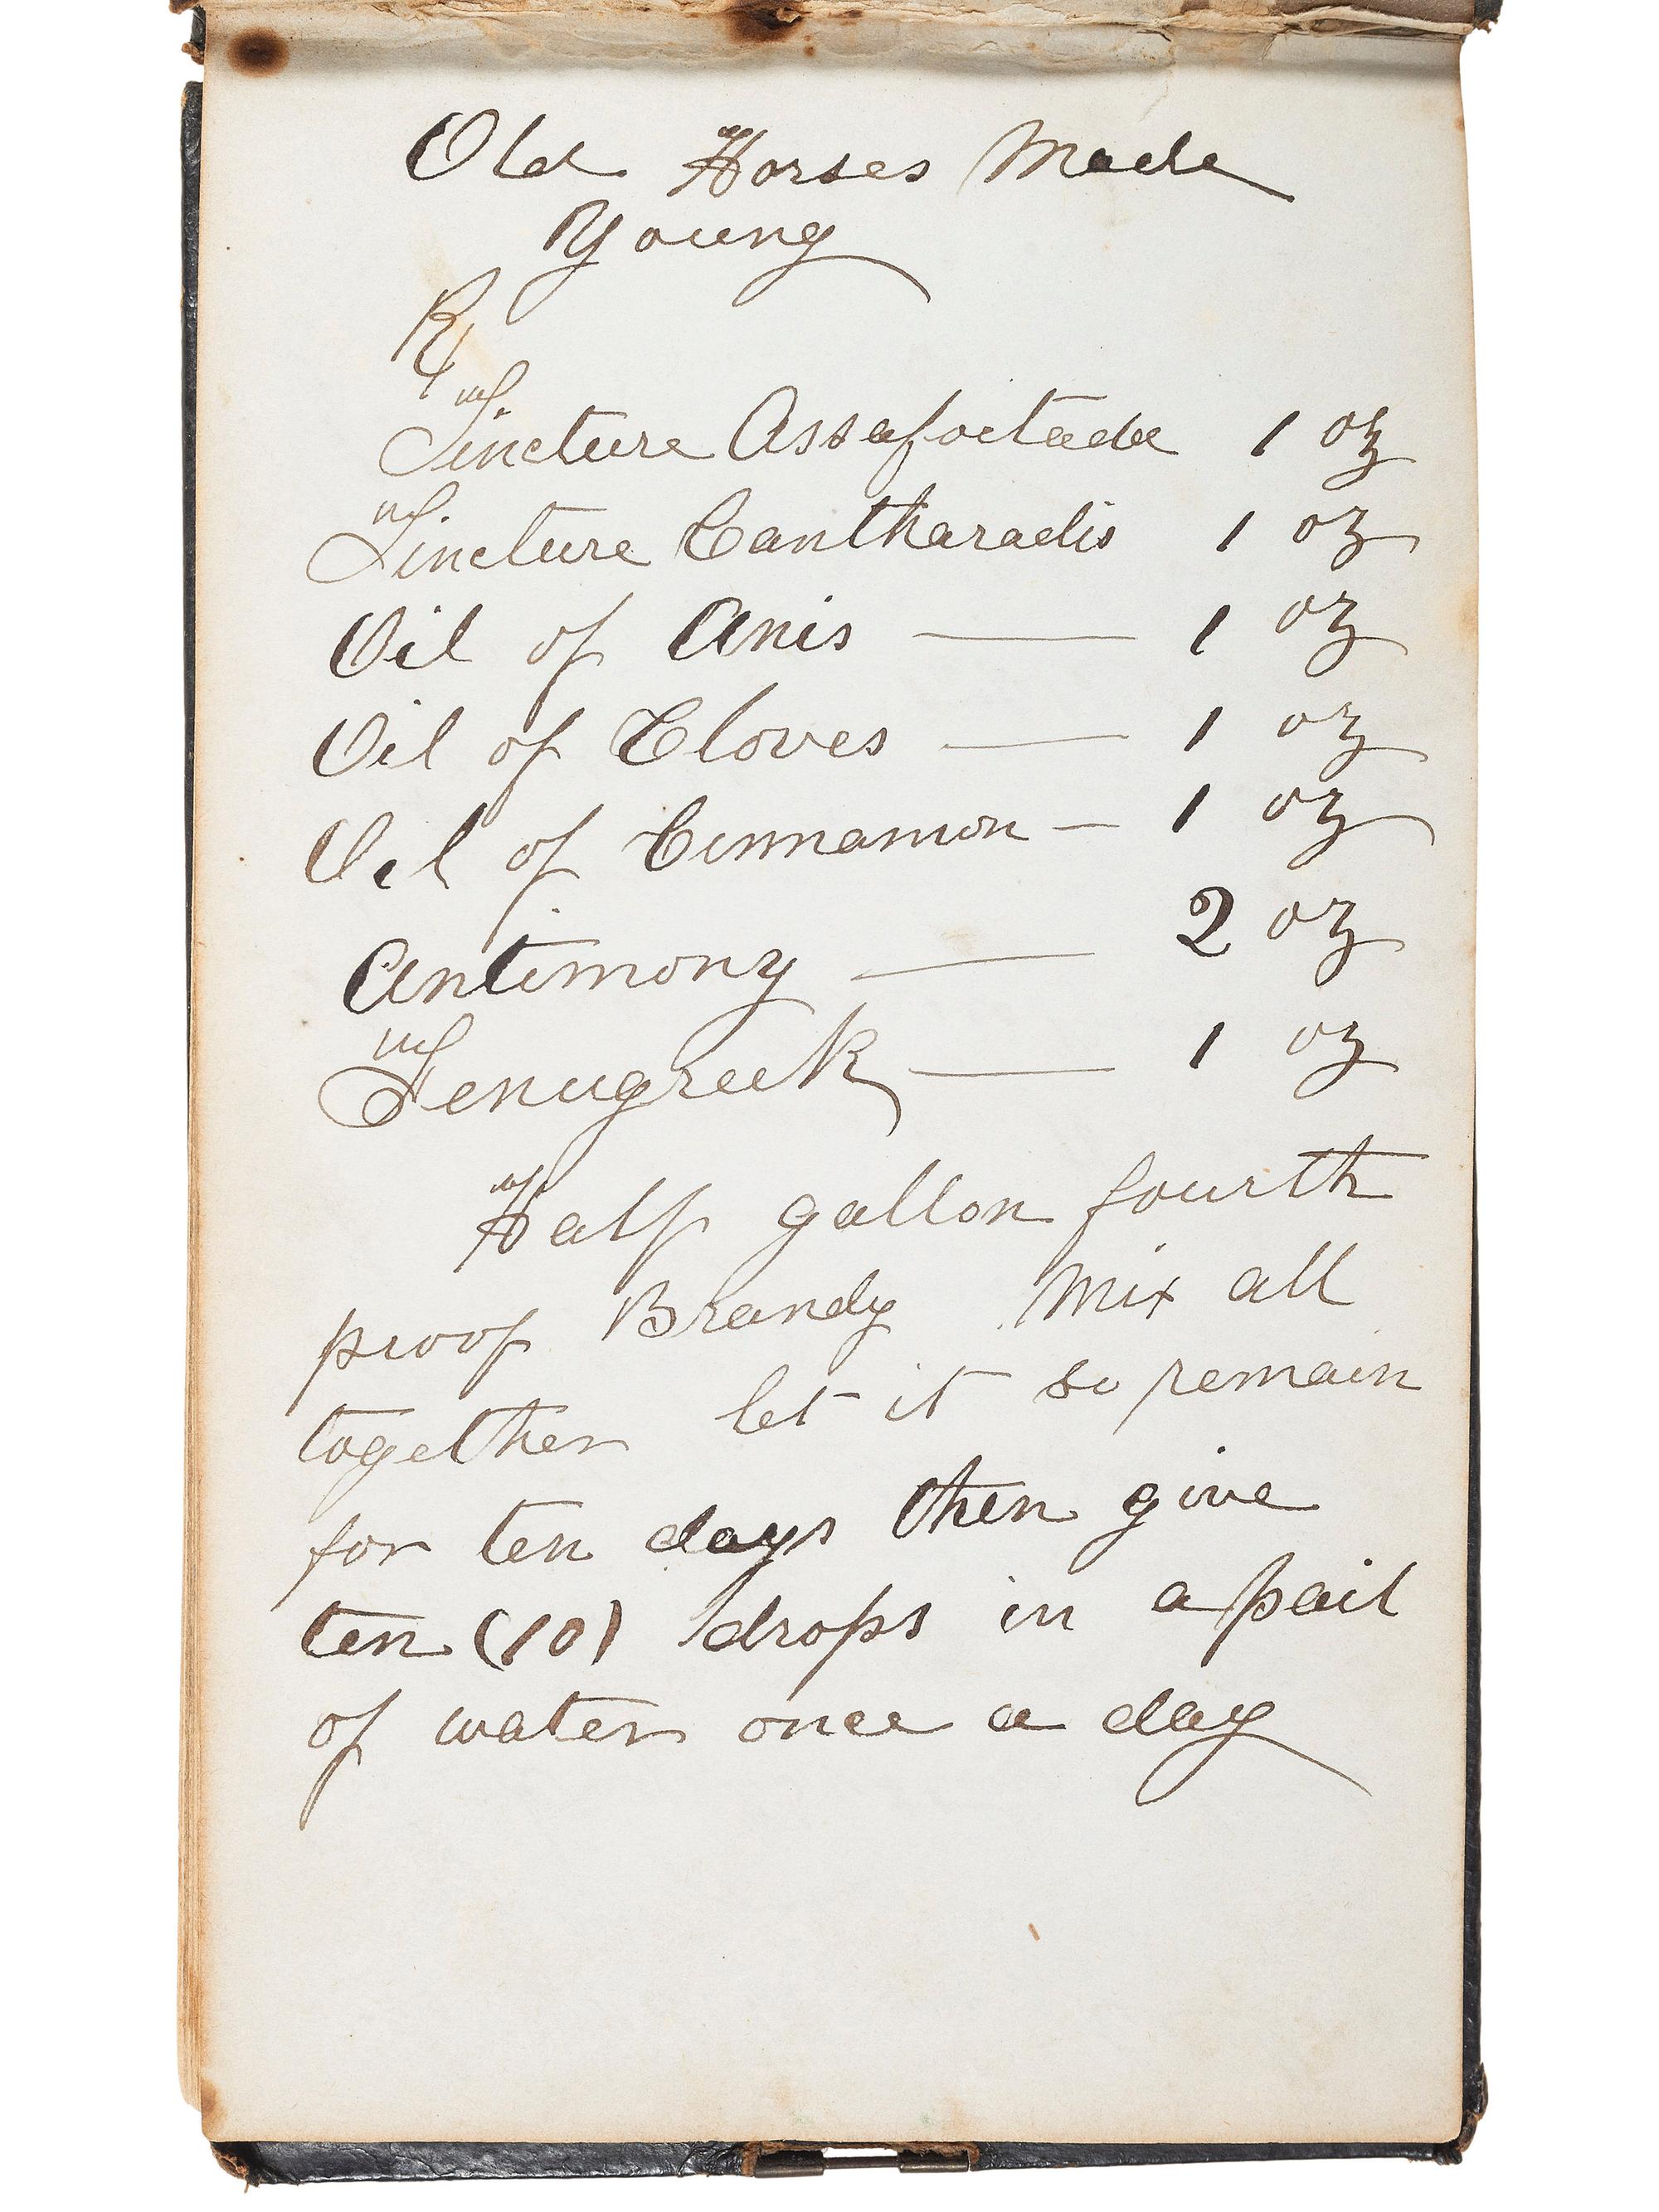 Old Horses Made
Young
℞
Tincture Assafoetada 1 oz
Tincture Cantharadis 1 oz
Oil of Anis — 1 oz
Oil of Cloves — 1 oz
Oil of Cinnamon — 1 oz
Antimony — 2 oz
Fenugreek — 1 oz
Half gallon fourth
proof Brandy Mix all
together let it so remain
for ten days then give
ten (10) drops in a pail
of water once a day